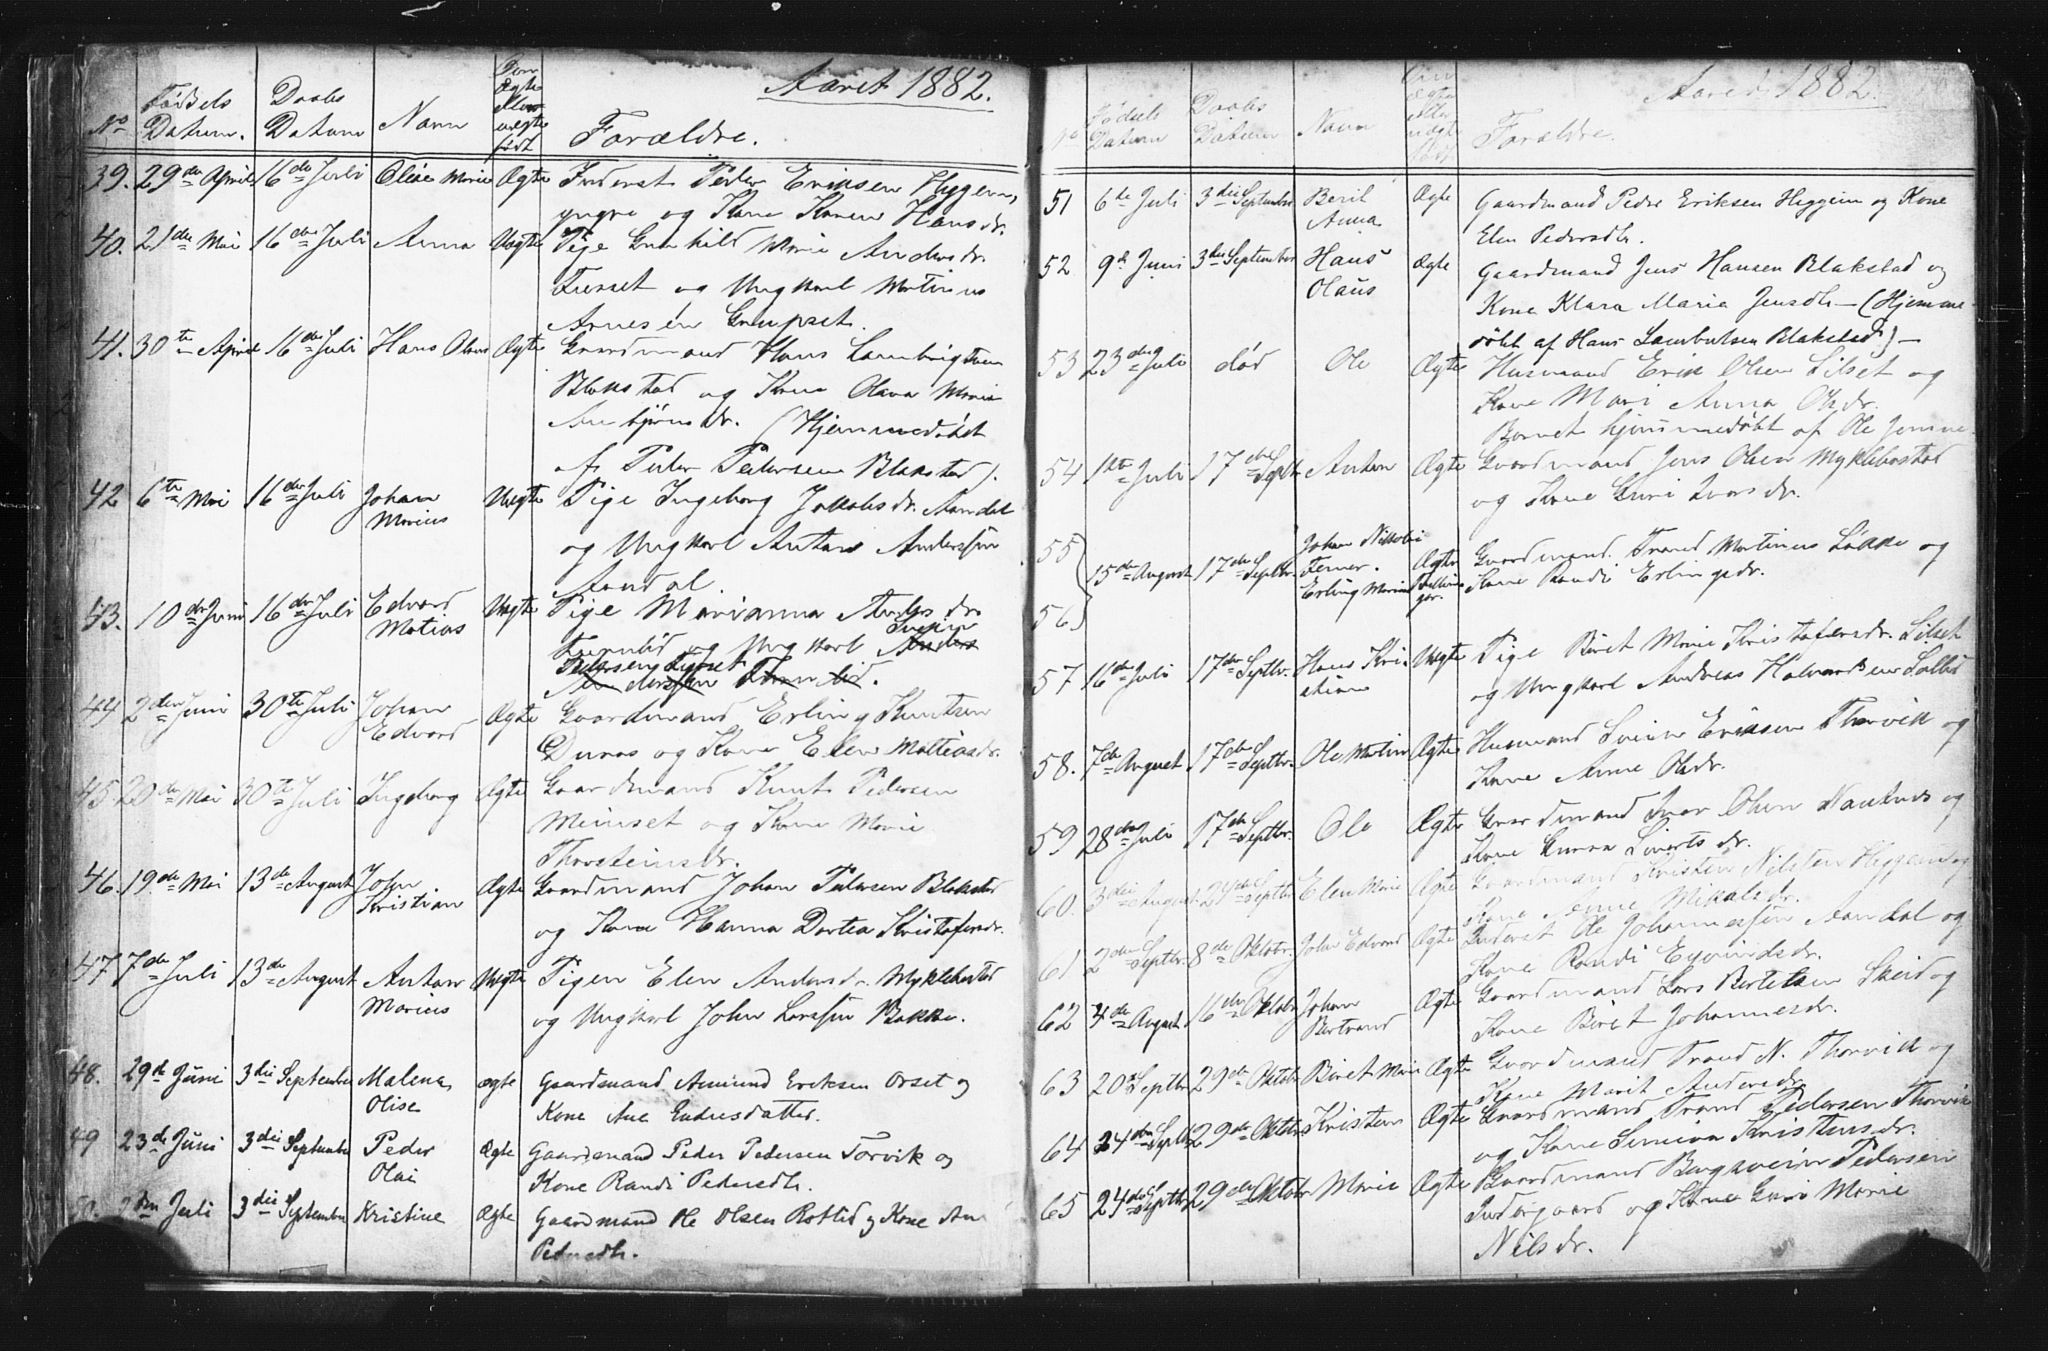 Aaret 1882.
No Fødsels Datum. Daabs Datum Navn Om Ægte eller uægte født Forældre.
39. 29de April 16de Juli Oline Marie Ægte Inderst Peder Eriksen Heggem,
yngre og Kone Karen Hansdr.
40. 21de Mai 16de Juli Anna Uægte Pige Gunhild Marie Andersdr.
Furset og Ungkarl Martinus
Arnesen Grupset.
41. 30te April 16de Juli Hans Olaus Ægte Gaardmand Hans Lambrigtsen
Blakstad og Kone Olava Marie
Arnbjørnsdr. (Hjemmedøbt
af Peder Pedersen Blakstad).
42 6te Mai 16de Juli Johan Marius Uægte Pige Ingeborg Jakobsdr. Aandal
og Ungkarl Antan Anderssen
Aandal.
43. 10de Juni 16de Juli Edvard Matias Uægte Pige Marianna Andersdr.
og Ungkarl Anders
Anderssen
44 2den Juni 30te Juli Johan Edvard Ægte Gaardmand Erling Knutsen
og Kone Elen Mattiasdr.
45 20de Mai 30te Juli Ingeborg Ægte Gaardmand Knut Pedersen
og Kone Marie
Thorsteinsdr.
46. 19de Mai 13de August John Kristian Ægte Gaardmand Johan Pedersen Blakstad
og Kone Hanna Dortea Kristofersdr.
47 7de Juli 13de August Antan Marius Uægte Pigen Elen Andersdr. Myklebostad
og Ungkarl John Larssen Bakke.
48. 29de Juni 3die September Malena Olise Ægte Gaardmand Amund Eriksen Orset og
Kone Ane Endresdatter.
49 23de Juni 3die September Peder Olai Ægte Gaardmand Peder Pedersen Torvik og
Kone Randi Pedersdtr.
50. 2den Juli 3die September Kristine Ægte Gaardmand Ole Olsen og Kone
Pedersdtr.
Aaret 1882.
No Fødsels Datum Daabs Datum Navn Om Ægte eller uægte født Forældre.
51 6te Juli 3die September Beril Anna Ægte Gaardmand Peder Eriksen Heggem og Kone
Elen Pedersdtr.
52 9de Juni 3die September Hans Olaus Ægte Gaardmand Jens Hansen Blakstad og
Kone Klara Maria Jensdtr — (Hjemme-
døbt af Hans Lambertsen Blakstad) —
53 23de Juli død Ole Ægte Husmand Erik Olsen Lilset og
Kone Mari Anna Olsdr.
Barnet hjemmedøbt af Ole
54 1ste Juli 17de Septbr Antan Ægte Gaardmand Jens Olsen Myklebostad
og Kone Guri Ivarsdr.
55 56 15de August 17de Septbr. Johan Nikolai Ferner. Erling Marius Ægte Tvillinger. Gaardmand Trond Martinus Løkke og
Kone Randi Erlingsdr.
57 16de Juli 17de Septbr. Hans Kristian Uægte Pige Beret Marie Kristofersdr. Lilset
og Ungkarl Andreas Halvardsen
58. 7de August 17de Septbr. Ole Martin Ægte Husmand Svein Eriksen Thorvik og
Kone Anne Olsdr.
59 28de Juli 17de Septbr. Ole Ægte Gaardmand Ivar Olsen og
Kone Sivertsdr.
60. 3die August 24de Septbr Elen Marie Ægte Gaardmand Kristen Nilssen Heggem og
Kone Anne Mikalsdr.
61 2den Septbr. 8de Oktobr. John Edvard Ægte Inderst Ole Johannessen Aandal og
Kone Randi Eyvindsdr.
62 4de August 16de Oktobr Johan Bertrand Ægte Gaardmand Lars Bertelsen Skeid og
Kone Beret Johannesdr.
63 20de Septbr. 29de Oktobr Beret Marie Ægte Gaardmand Trond N. Thorvik og
Kone Marit Andersdr.
64 24de Septbr 29de Oktobr Kristen Ægte Gaardmand Trond Pedersen Thorvik
og Kone Simina Kristensdr.
65 24de Septbr 29de Oktobr Marie Ægte Gaardmand Bergsvein Pedersen
Indergaard og Kone Guri Marie
Nilsdr.